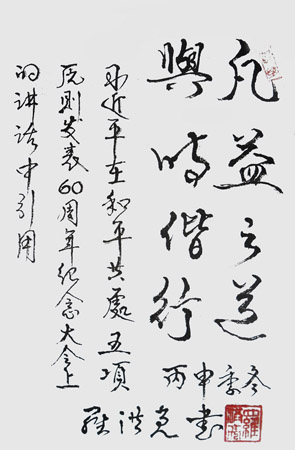 凡益之道
與時偕行
习近平在和平共處五項
原则发表60周年纪念大会上
的讲话中引用
丙申季冬
羅洪克书